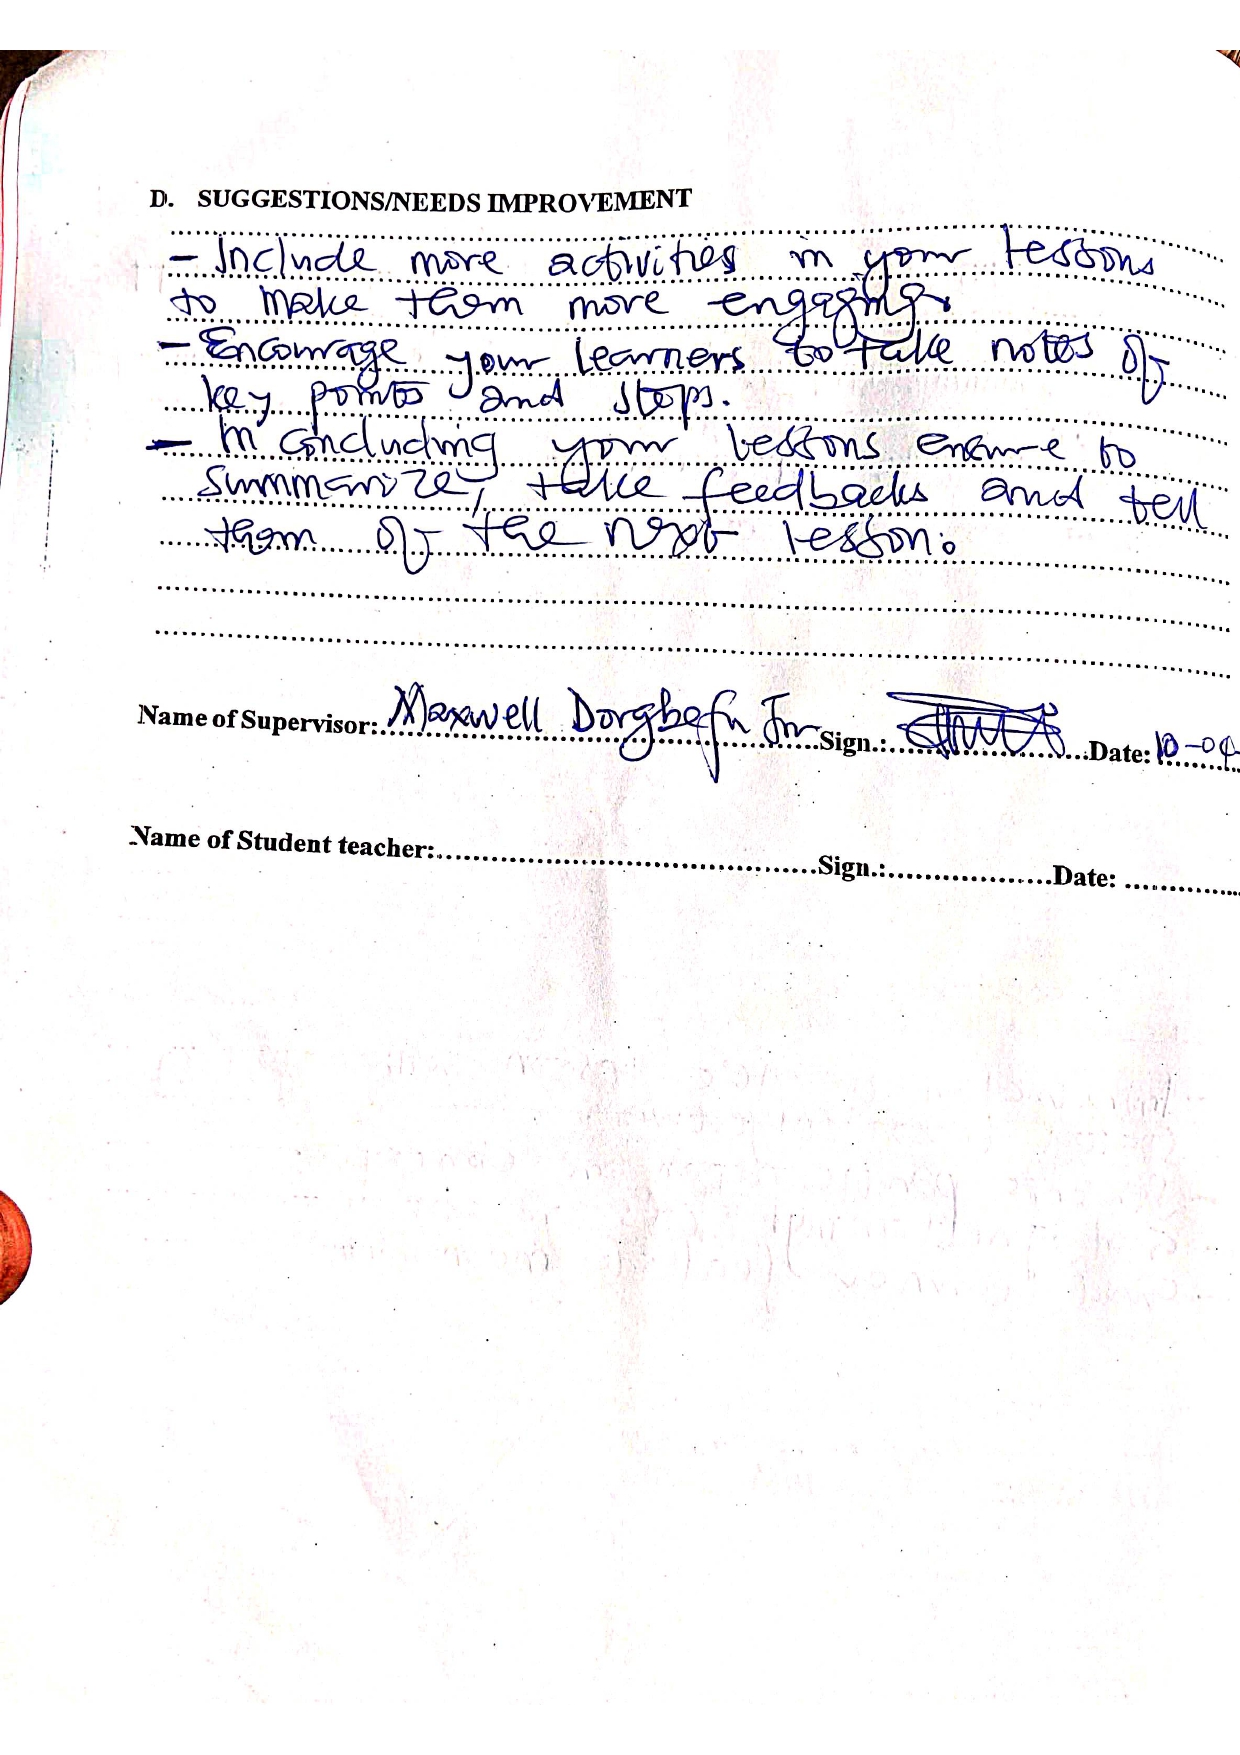 D. SUGGESTIONS/NEEDS IMPROVEMENT
- Include more activities in your lessons
to make them more engaging.
- Encourage your learners to take notes of
key points and steps.
- In concluding your lessons ensure to
summarize, take feedbacks and tell
them of the next lesson.
Name of Supervisor: Maxwell Dorgbefu Jnr Sign.: Date: 10-04
Name of Student teacher: Sign.: Date: